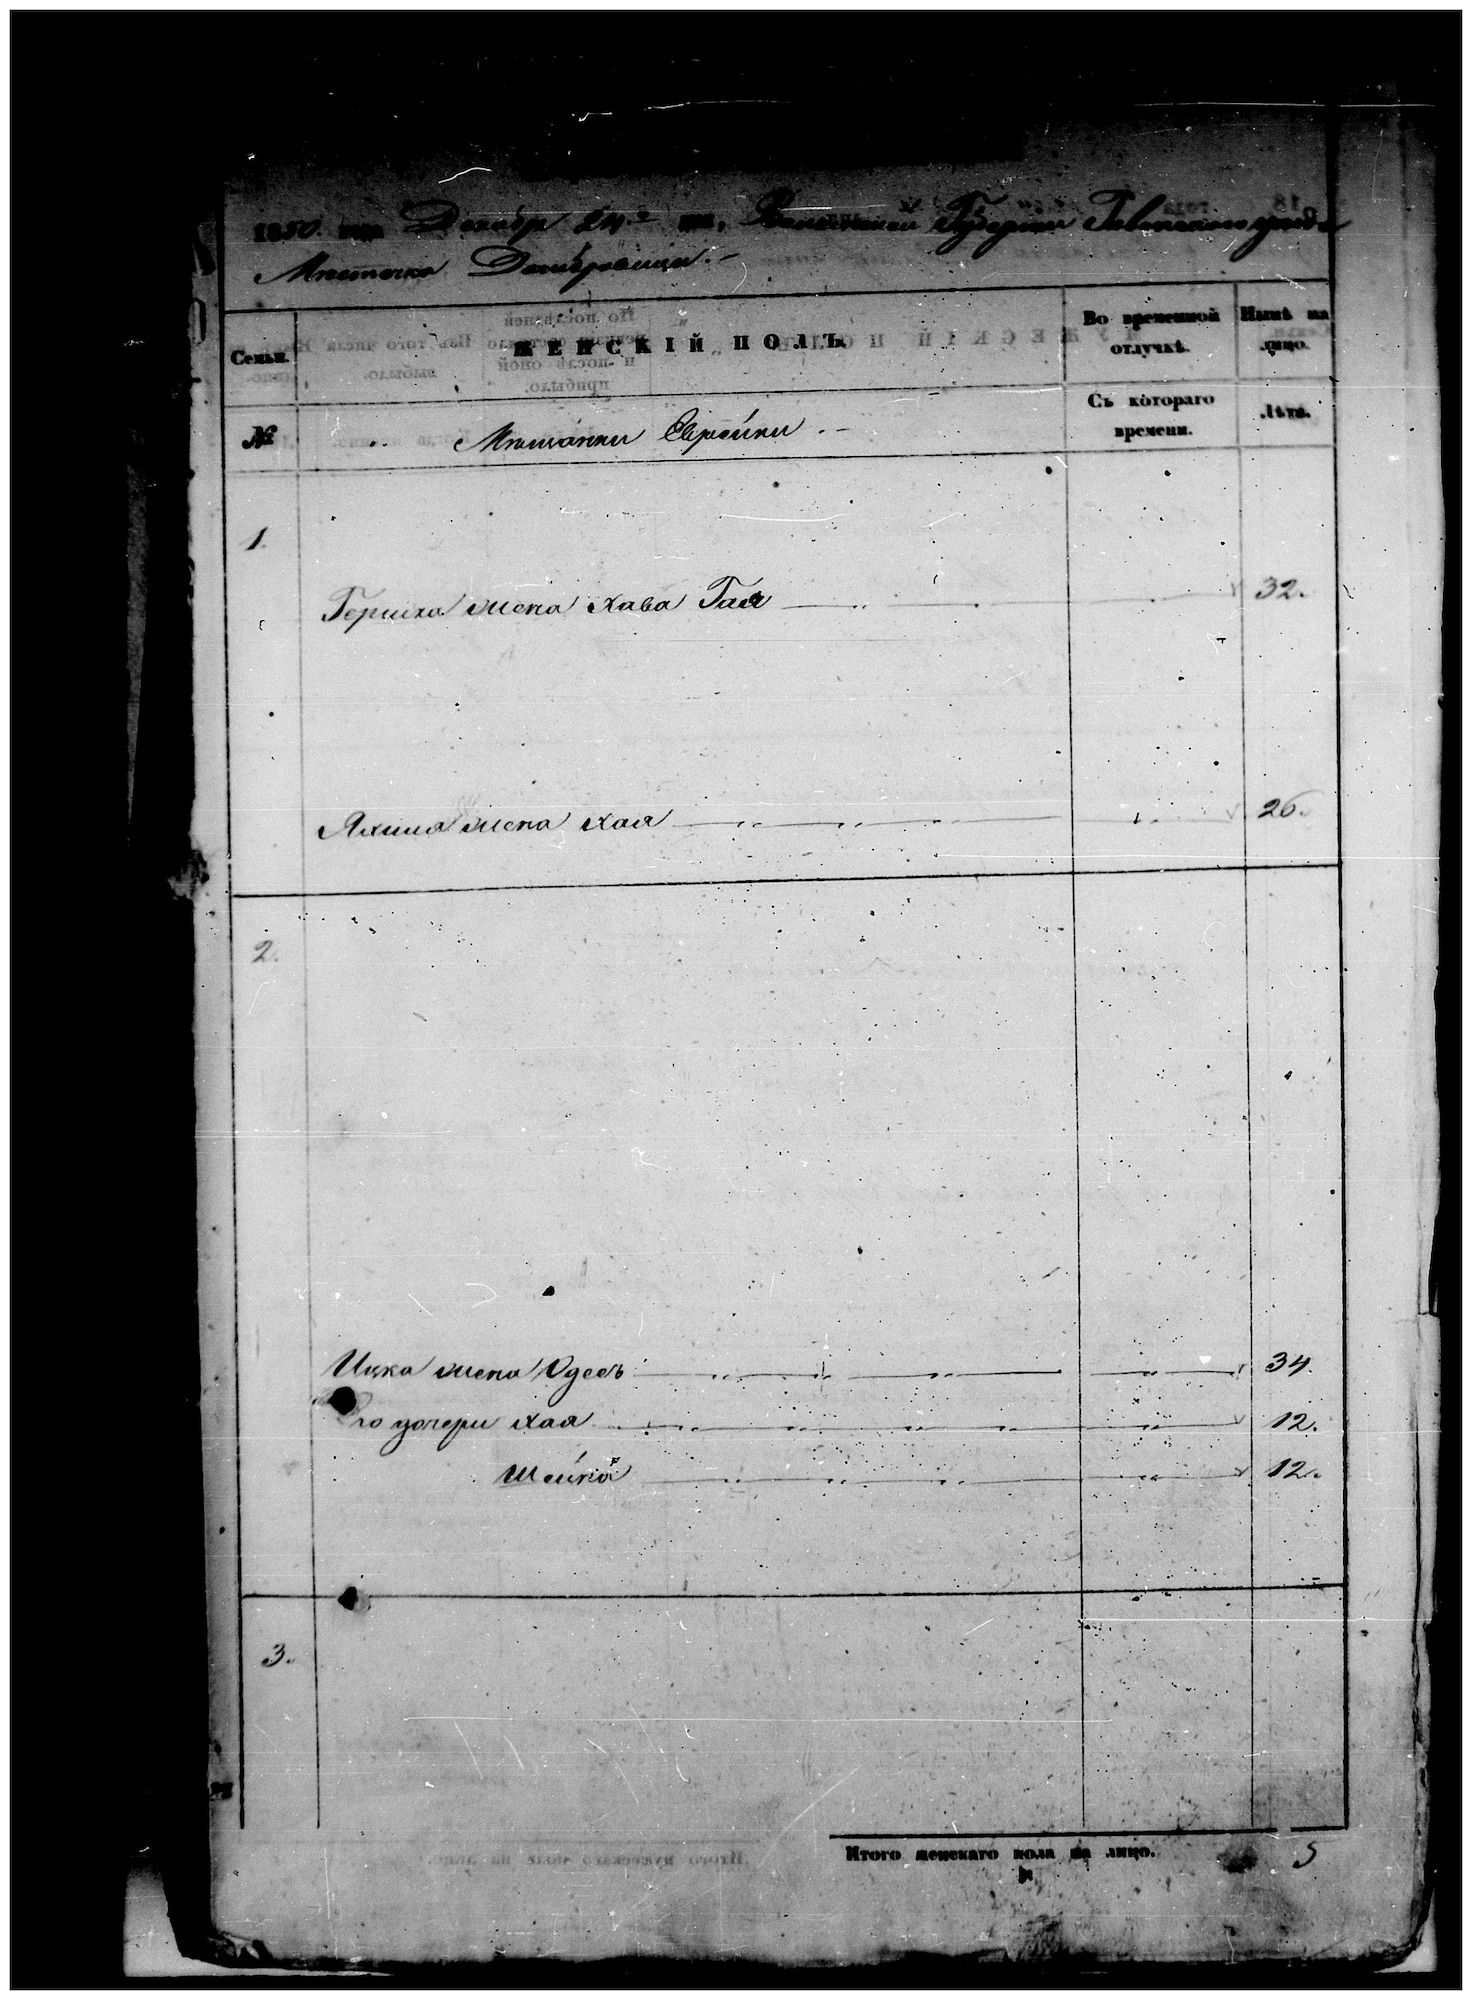 1850. года Декабря 24.го дня, Волынской Губернии Ровенского уезда
Местечка Домбровицы.-
Семьи.
ЖЕНСКІЙ ПОЛЪ.
Во временной
отлучкѣ.
Нынѣ на
лицо.
№
Мѣщанки Еврейки.-
Съ котораго
времени.
Лѣта.
1.
Гершка жена Хава Гася 32.
жена Хая 26.
2.
Ицка жена Одесъ 34.
Его дочери Хая 12.
Шейна 12.
3.
Итого женскаго пола на лицо. 5